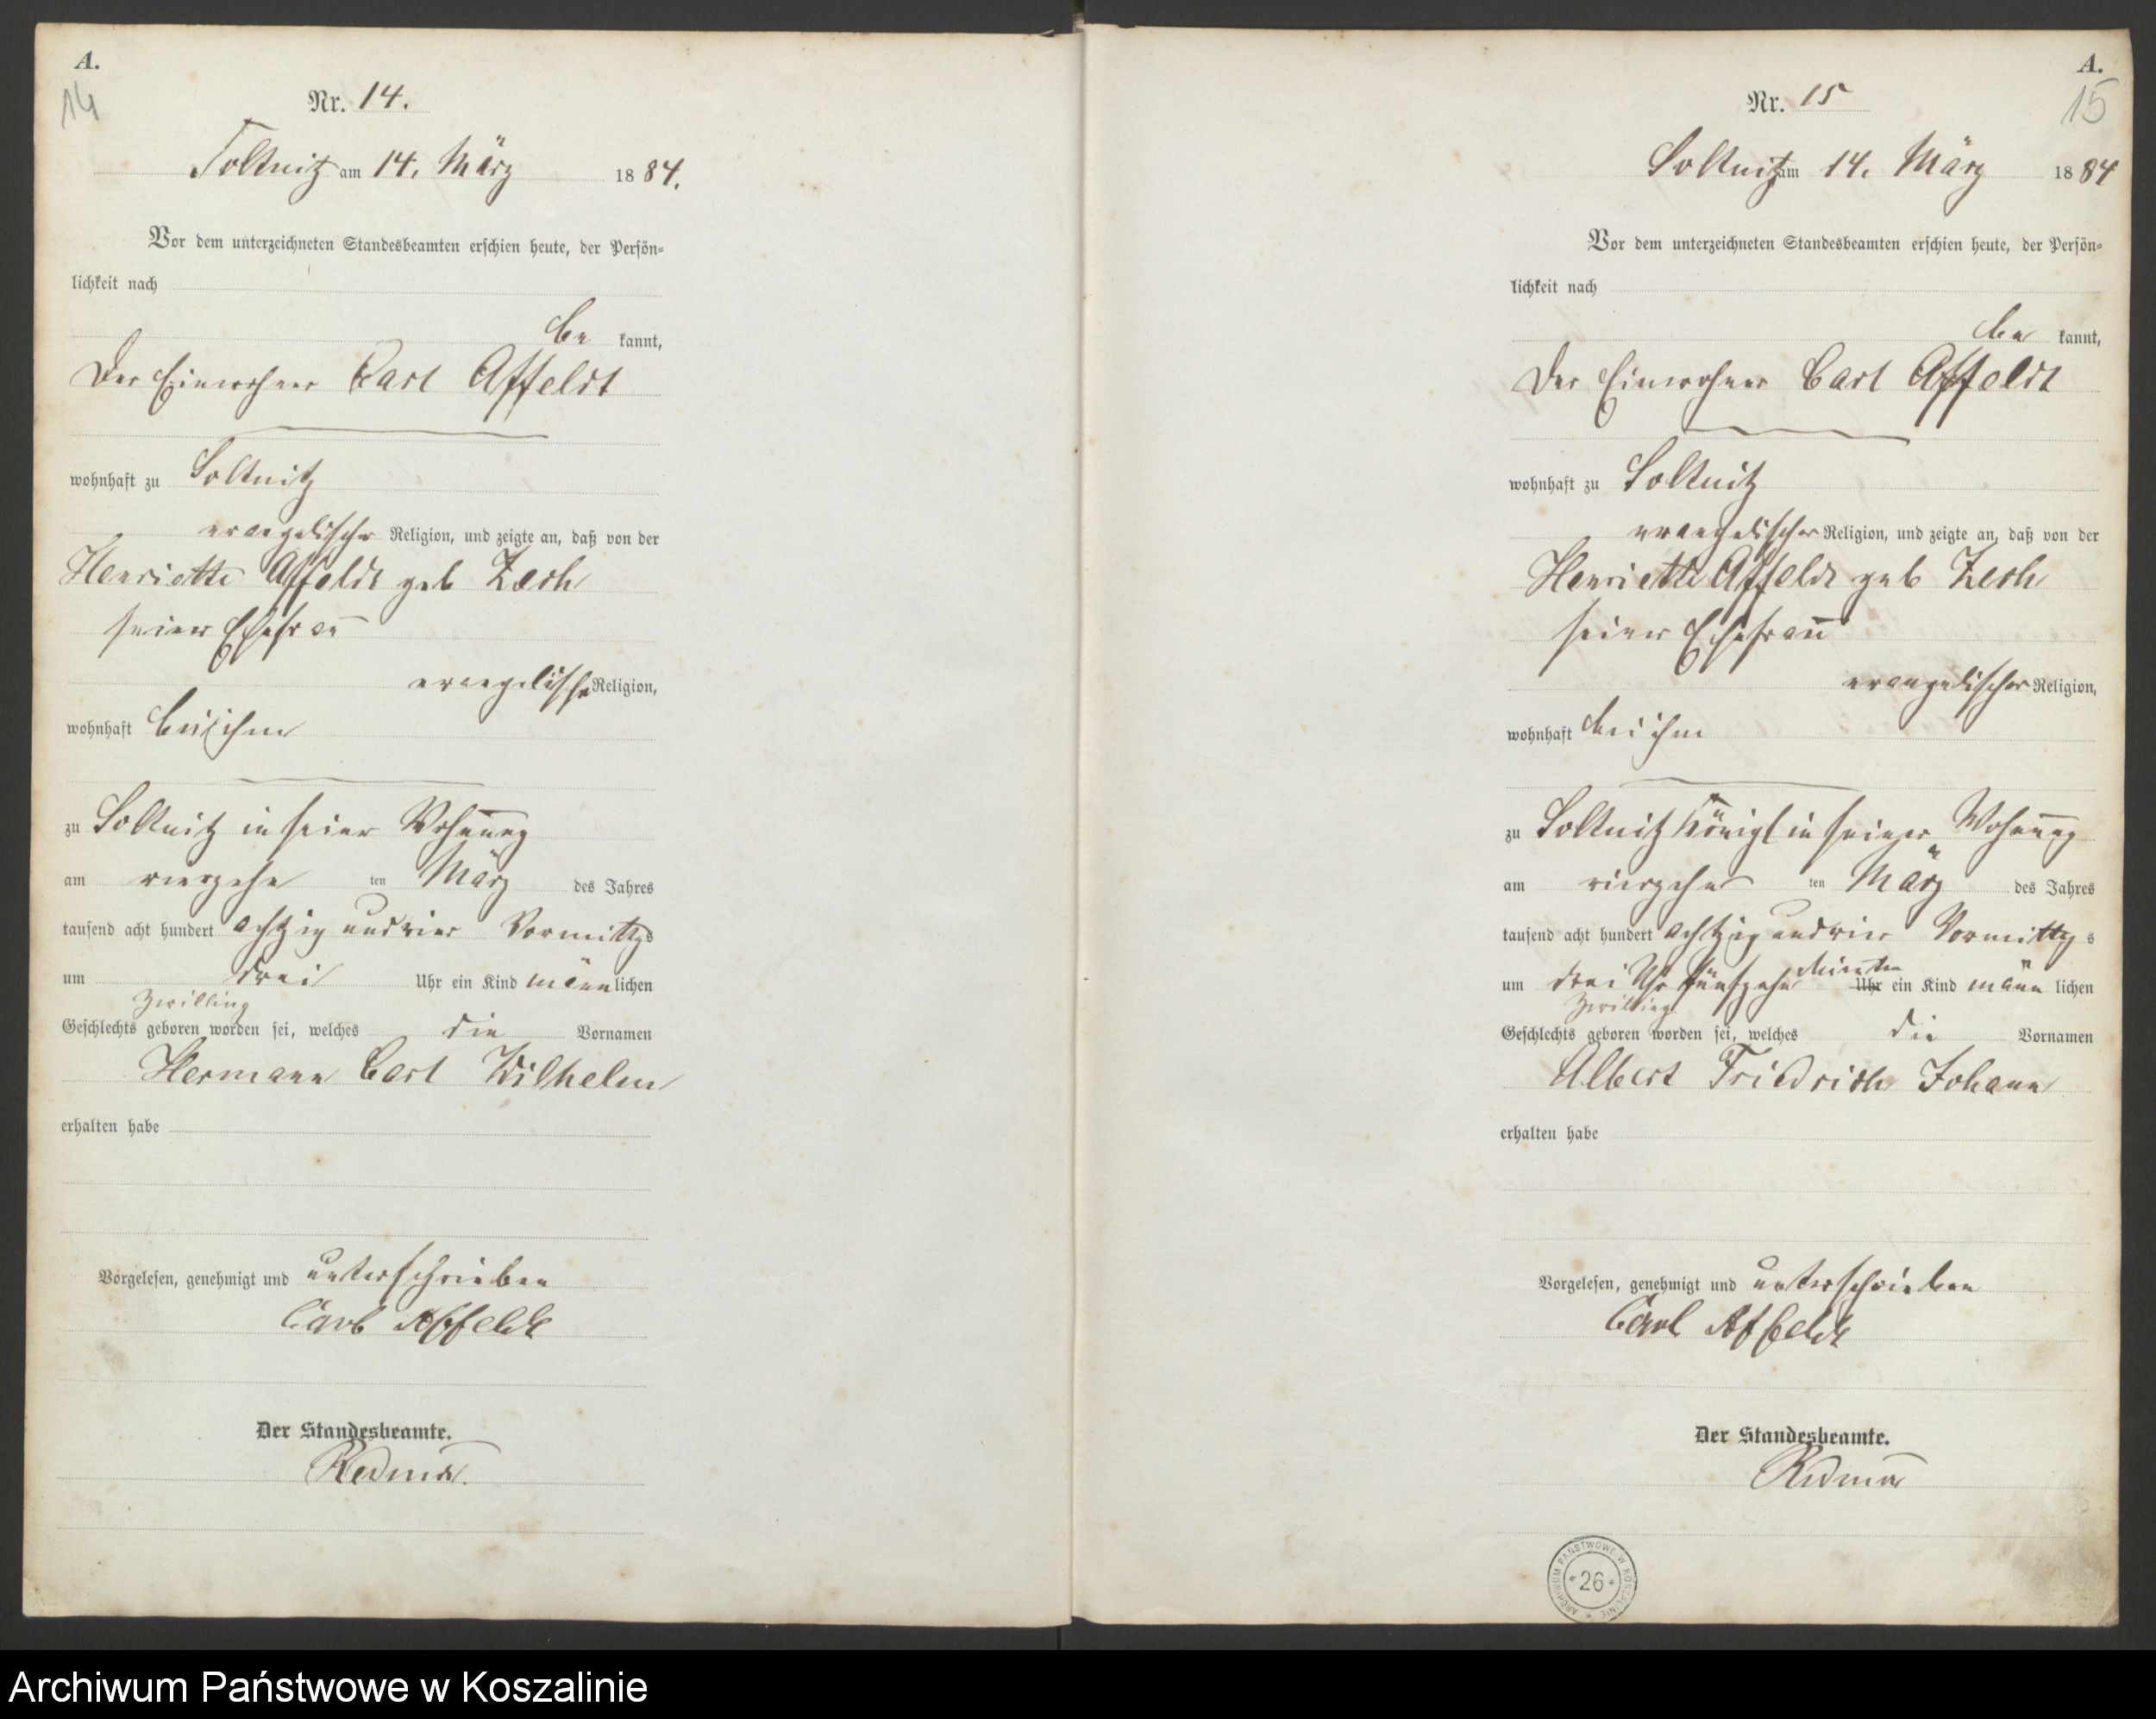 A.
14
Nr. 14.
Soltnitz am 14. März 1884.
Vor dem unterzeichneten Standesbeamten erschien heute, der Persön-
lichkeit nach
be kannt,
der Einwohner Carl Affeldt
wohnhaft zu Soltnitz
evangelischer Religion, und zeigte an, daß von der
Henriette Affeldt geb Zech
seiner Ehefrau
evangelischer Religion,
wohnhaft bei ihm
zu Soltnitz in seiner Wohnung
am vierzehn ten März des Jahres
tausend acht hundert achtzig und vier Vormittgs
um drei Uhr ein Kind männlichen
Zwilling
Geschlechts geboren worden sei, welches die Vornamen
Hermann Carl Wilhelm
erhalten habe
Vorgelesen, genehmigt und unterschrieben
Carl Affeldt
Der Standesbeamte.
A.
15
Nr. 15
Soltnitz am 14. März 1884
Vor dem unterzeichneten Standesbeamten erschien heute, der Persön-
lichkeit nach
be kannt,
der Einwohner Carl Affeldt
wohnhaft zu Soltnitz
evangelischer Religion, und zeigte an, daß von der
Henriette Affeldt geb Zech
seiner Ehefrau
evangelischer Religion,
wohnhaft bei ihm
zu Soltnitz Königl in seiner Wohnung
am vierzehn ten März des Jahres
tausend acht hundert achtzig und vier Vormittgs
um drei Uhr fünfzehn Minuten Uhr ein Kind männlichen
Zwilling
Geschlechts geboren worden sei, welches die Vornamen
Albert Friedrich Johann
erhalten habe
Vorgelesen, genehmigt und unterschrieben
Carl Affeldt
Der Standesbeamte.
ARCHIWUM PAŃSTWOWE W KOSZALINIE
* 26 *
Archiwum Państwowe w Koszalinie